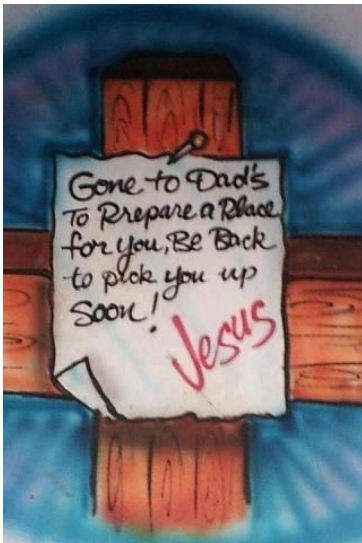 Gone to Dad's
To Prepare a Place
for you, Be Back
to pick you up
soon!
Jesus